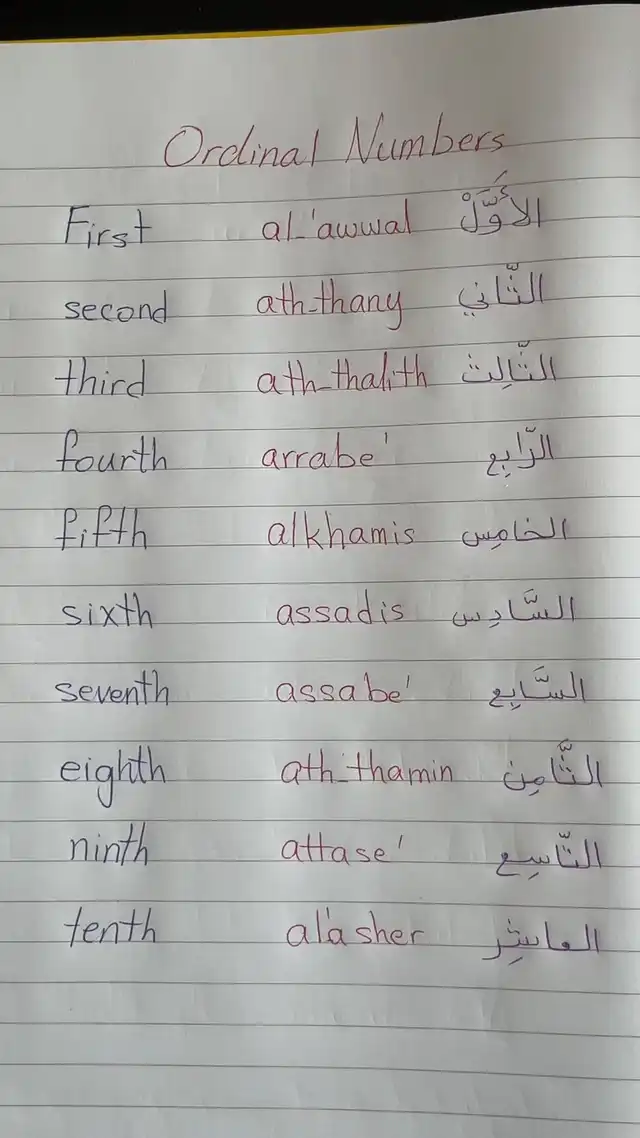 Ordinal Numbers
First al-'awwal الأَوَّلْ
second ath-thany الثَّاني
third ath-thalith الثَّالِث
fourth arrabe' الرَّابِع
fifth alkhamis الخامِس
sixth assadis السَّادِس
seventh assabe' السَّابِع
eighth ath-thamin الثَّامِن
ninth attase' التَّاسِع
tenth al'asher العاشِر